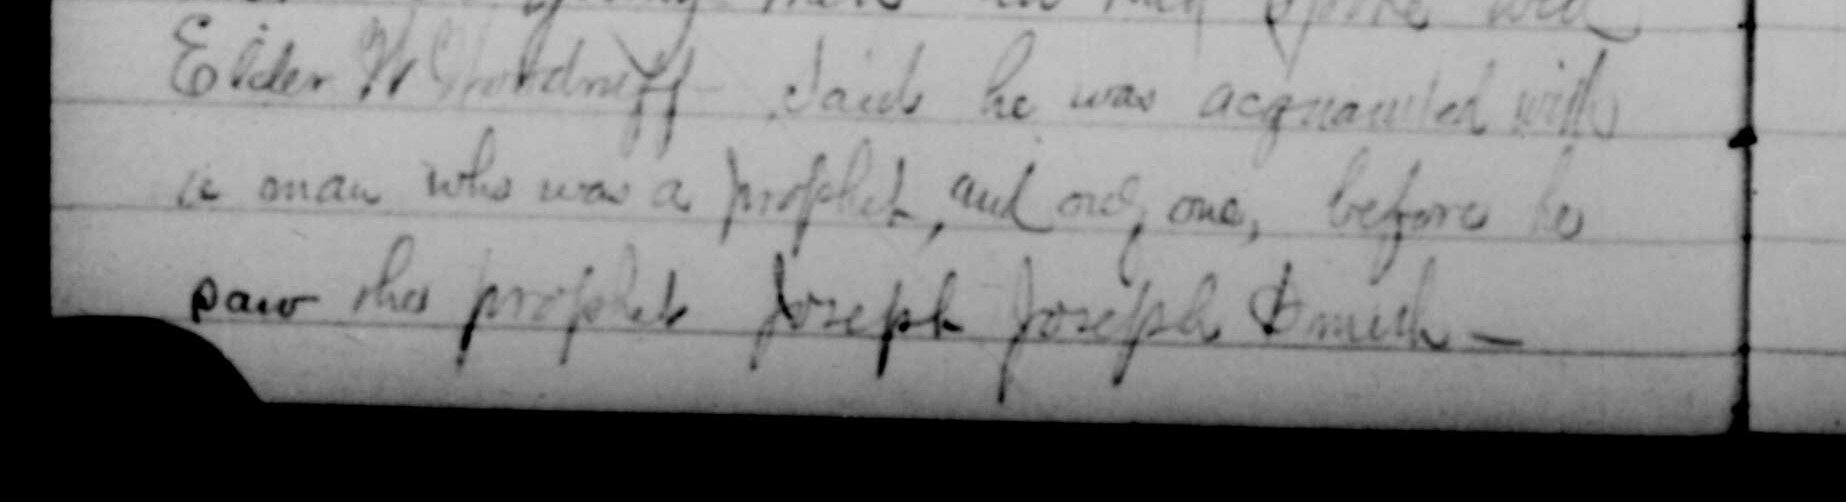 young men
Elder W Woodruff - Said he was acquainted with
a man who was a prophet, and only one, before he
saw the prophet Joseph Joseph Smith -